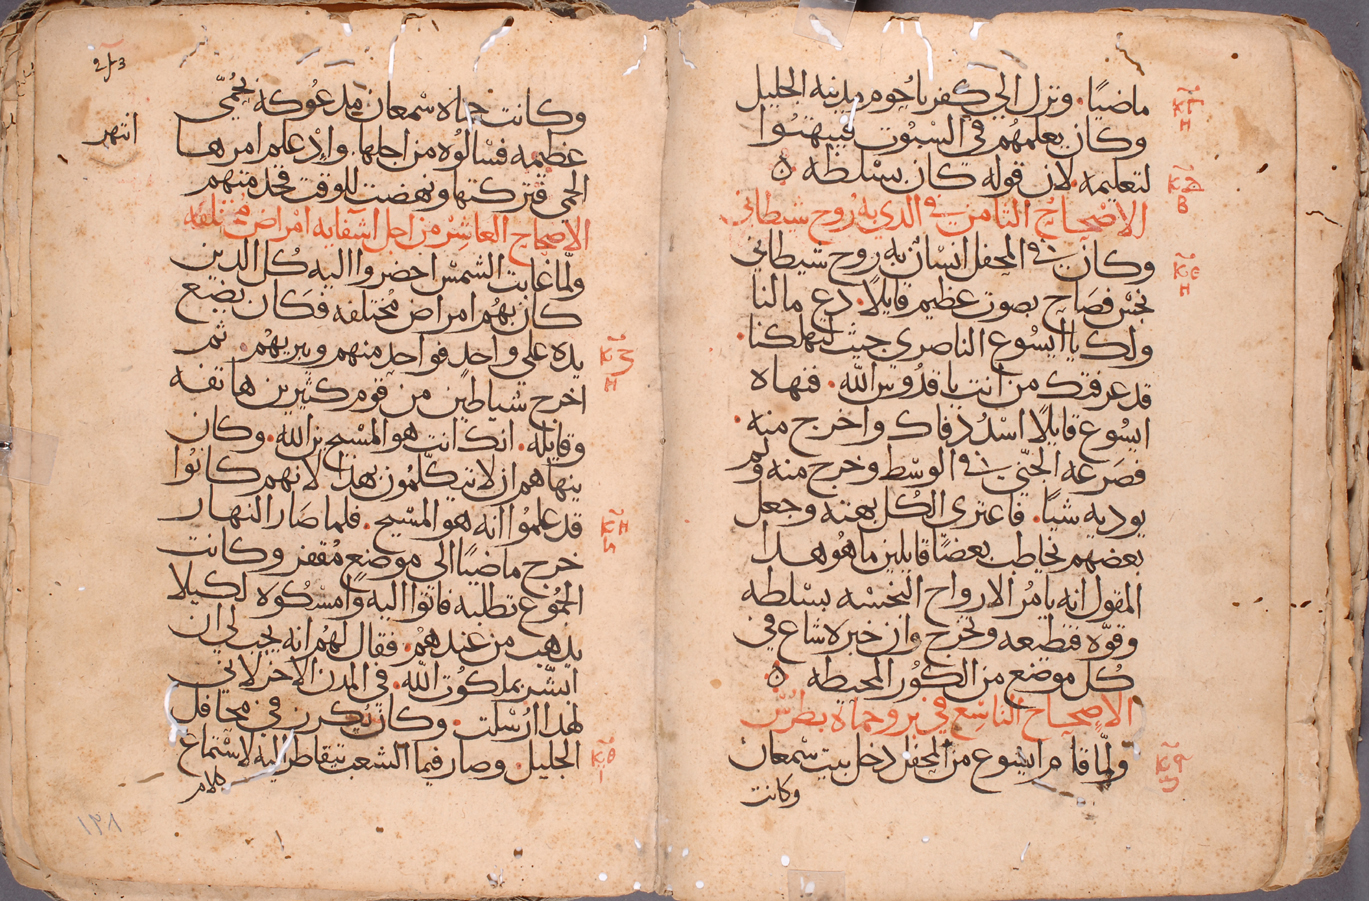 ماضيًا. ونزل الي كفرناحوم مدينه الجليل
وكان يعلمهم في السبوت فيبهتوا
لتعليمه. لان قوله كان بسلطه
الاصحاح الثامن في الدي به روح شيطاني
وكان في المحفل انسان به روح شيطاني
نجس فصاح بصوت عظيم قايلًا. دع مالنا
ولك يا ايسوع الناصري جيت لتهلكنا.
قد عرفتك من انت يا قدوس الله. فنهاه
ايسوع قايلًا اسدد فاك واخرج منه.
فصرعه الجني في الوسط وخرج منه ولم
يوديه شيًا. فاعتري الكل بهته وجعل
بعضهم يخاطب بعضًا قايلين ما هو هدا
المقول انه يامر الارواح النجسه بسلطه
وقوه قطيعه وتخرج وان خبره شاع في
كل موضع من الكور المحيطه
الاصحاح التاسع في برو حماه بطرس
ولما قام ايسوع من المحفل دخل بيت سمعان
وكانت
وكانت حماه سمعان مدعوكه بحمي
عظيمه فسالوه من اجلها. واد عليم امرها
انتهر
الحمي فتركتها ونهضت للوقت تخدمتهم
الاصحاح العاشر من اجل اشفايه امراض مختلفه
ولما غابت الشمس احضروا اليه كل الدين
كان بهم امراض مختلفه فكان يضع
يده علي واحد فواحد منهم ويبريهم. ثم
اخرج شياطين من قوم كثيرين هاتفه
وقايله. انك انت هو المسيح بن الله. وكان
ينهاهم ان لا يتكلمون بهدا لانهم كانوا
قد علموا انه هو المسيح. فلما صار النهار
خرج ماضيًا الي موضع مقفر وكانت
الجموع تطلبه فاتوا اليه وامسكوه لكيلا
يدهب من عندهم. فقال لهم انه يجب لي ان
ابشر بملكوت الله. في المدن الاخر لاني
لهدا ارسلت. وكان يكرز في محافل
الجليل. وصار فيما الشعب يتقاطر اليه لاستماع
كلام
١٣٨